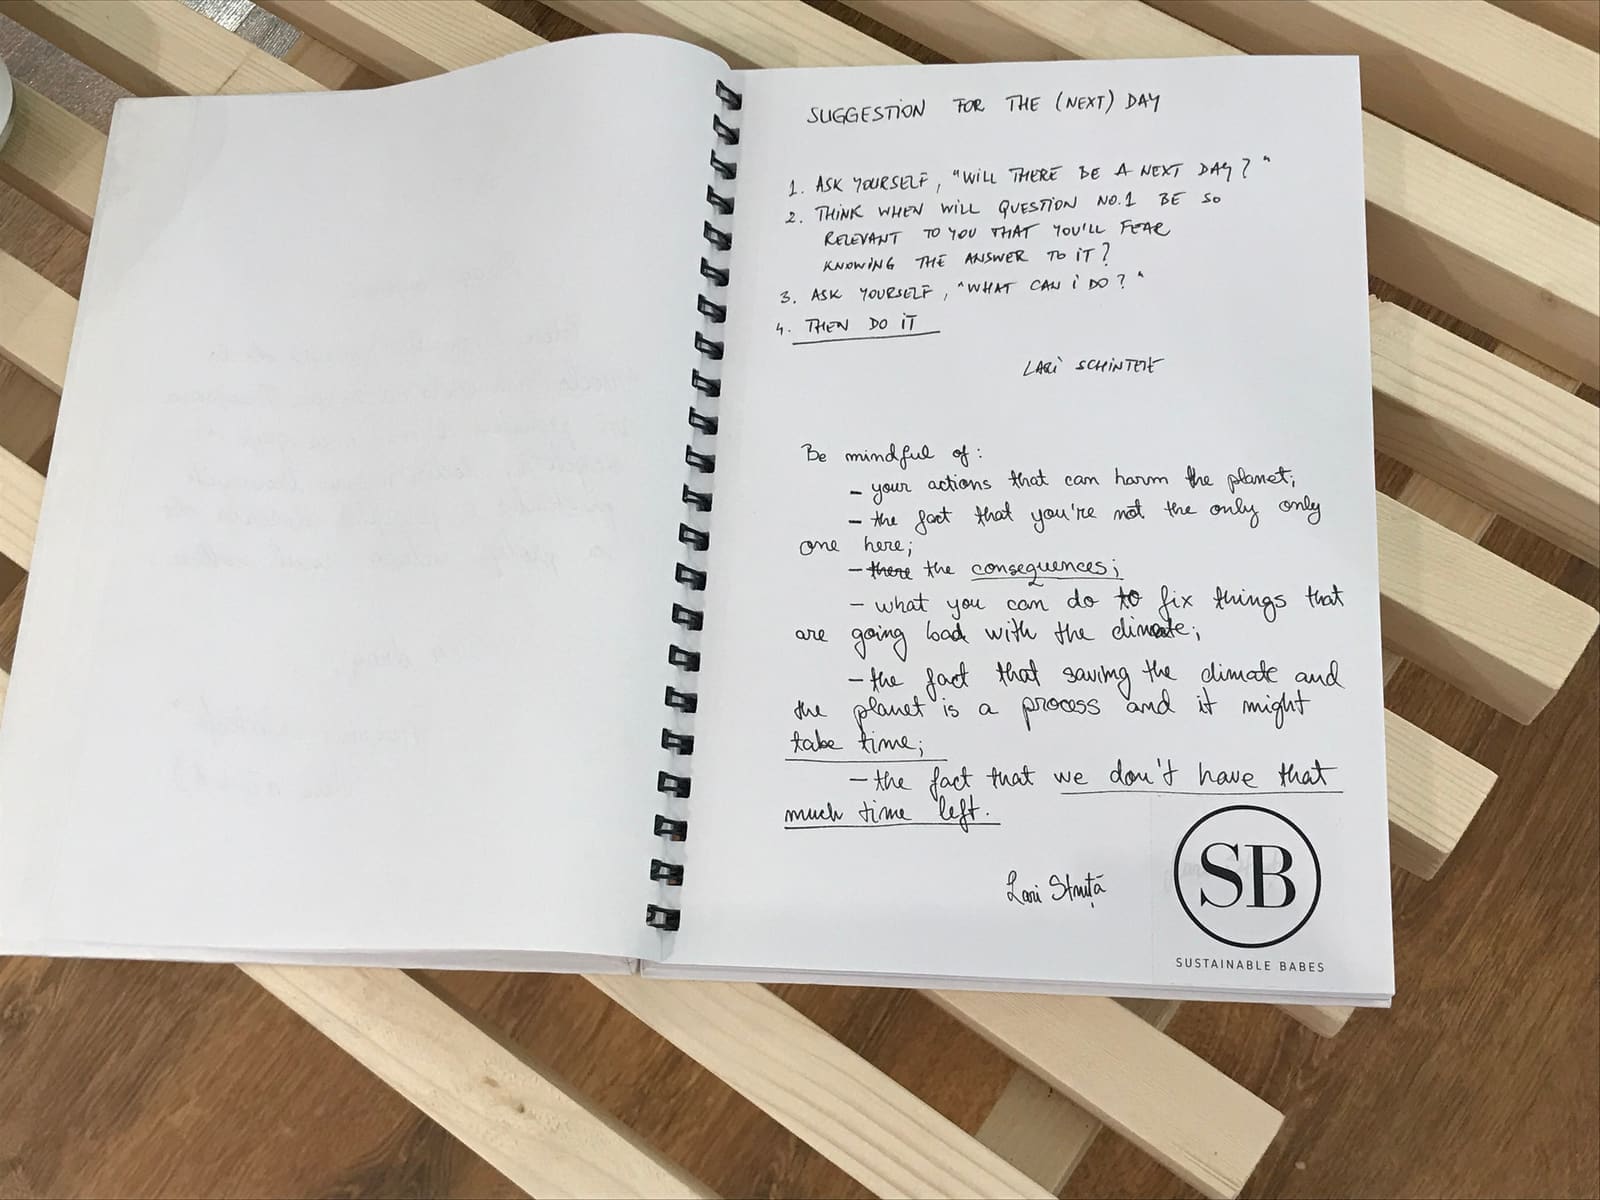 SUGGESTION FOR THE (NEXT) DAY
1. ASK YOURSELF, "WILL THERE BE A NEXT DAY?"
2. THINK WHEN WILL QUESTION NO.1 BE SO
RELEVANT TO YOU THAT YOU'LL FEAR
KNOWING THE ANSWER TO IT?
3. ASK YOURSELF, "WHAT CAN I DO?"
4. THEN DO IT
LARI
Be mindful of:
- your actions that can harm the planet;
- the fact that you're not the only only
one here;
- there the consequences;
- what you can do to fix things that
are going bad with the climate;
- the fact that saving the climate and
the planet is a process and it might
take time;
- the fact that we don't have that
much time left.
Lari
SB
SUSTAINABLE BABES